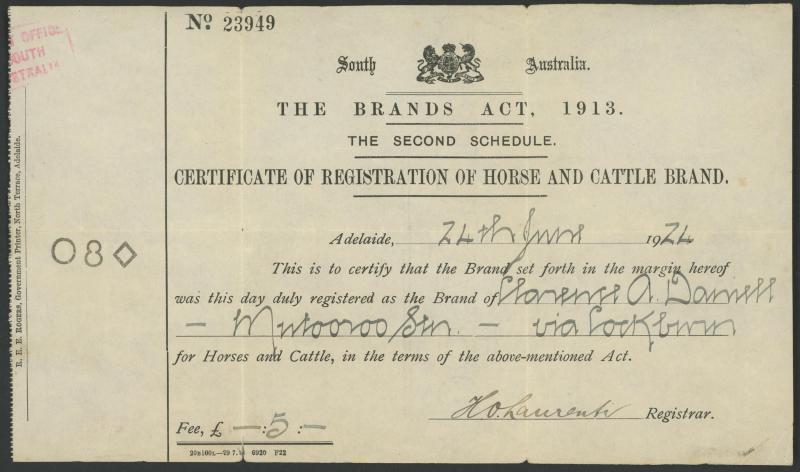 No. 23949
OFFICE
SOUTH
South Australia.
THE BRANDS ACT, 1913.
THE SECOND SCHEDULE.
CERTIFICATE OF REGISTRATION OF HORSE AND CATTLE BRAND.
Adelaide, 24th June 1924
This is to certify that the Brand set forth in the margin hereof
was this day duly registered as the Brand of Clarence A. Darnell
— Mutooroo Stn. — via Cockburn
for Horses and Cattle, in the terms of the above-mentioned Act.
H.O. Laurenti Registrar.
Fee, £ — : 5 : —
6920 F22
O8◇
R. E. E. ROGERS, Government Printer, North Terrace, Adelaide.